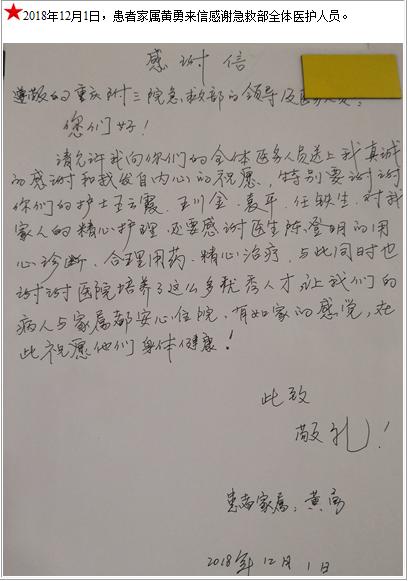 ★2018年12月1日，患者家属黄勇来信感谢急救部全体医护人员。
感谢信
尊敬的重庆附三院急救部的领导及医务人员：
您们好！
请允许我向你们的全体医务人员送上我真诚
的感谢和我发自内心的祝愿、特别要谢谢
你们的护士王云霞、王川金、袁平、任铁生、对我
家人的精心护理，还要感谢医生陈登明的用
心诊断、合理用药、精心治疗，与此同时也
谢谢医院培养了这么多优秀人才，让我们的
病人与家属都安心住院，有如家的感觉，在
此祝愿他们身体健康！
此致
敬礼！
患者家属：黄勇
2018年12月1日